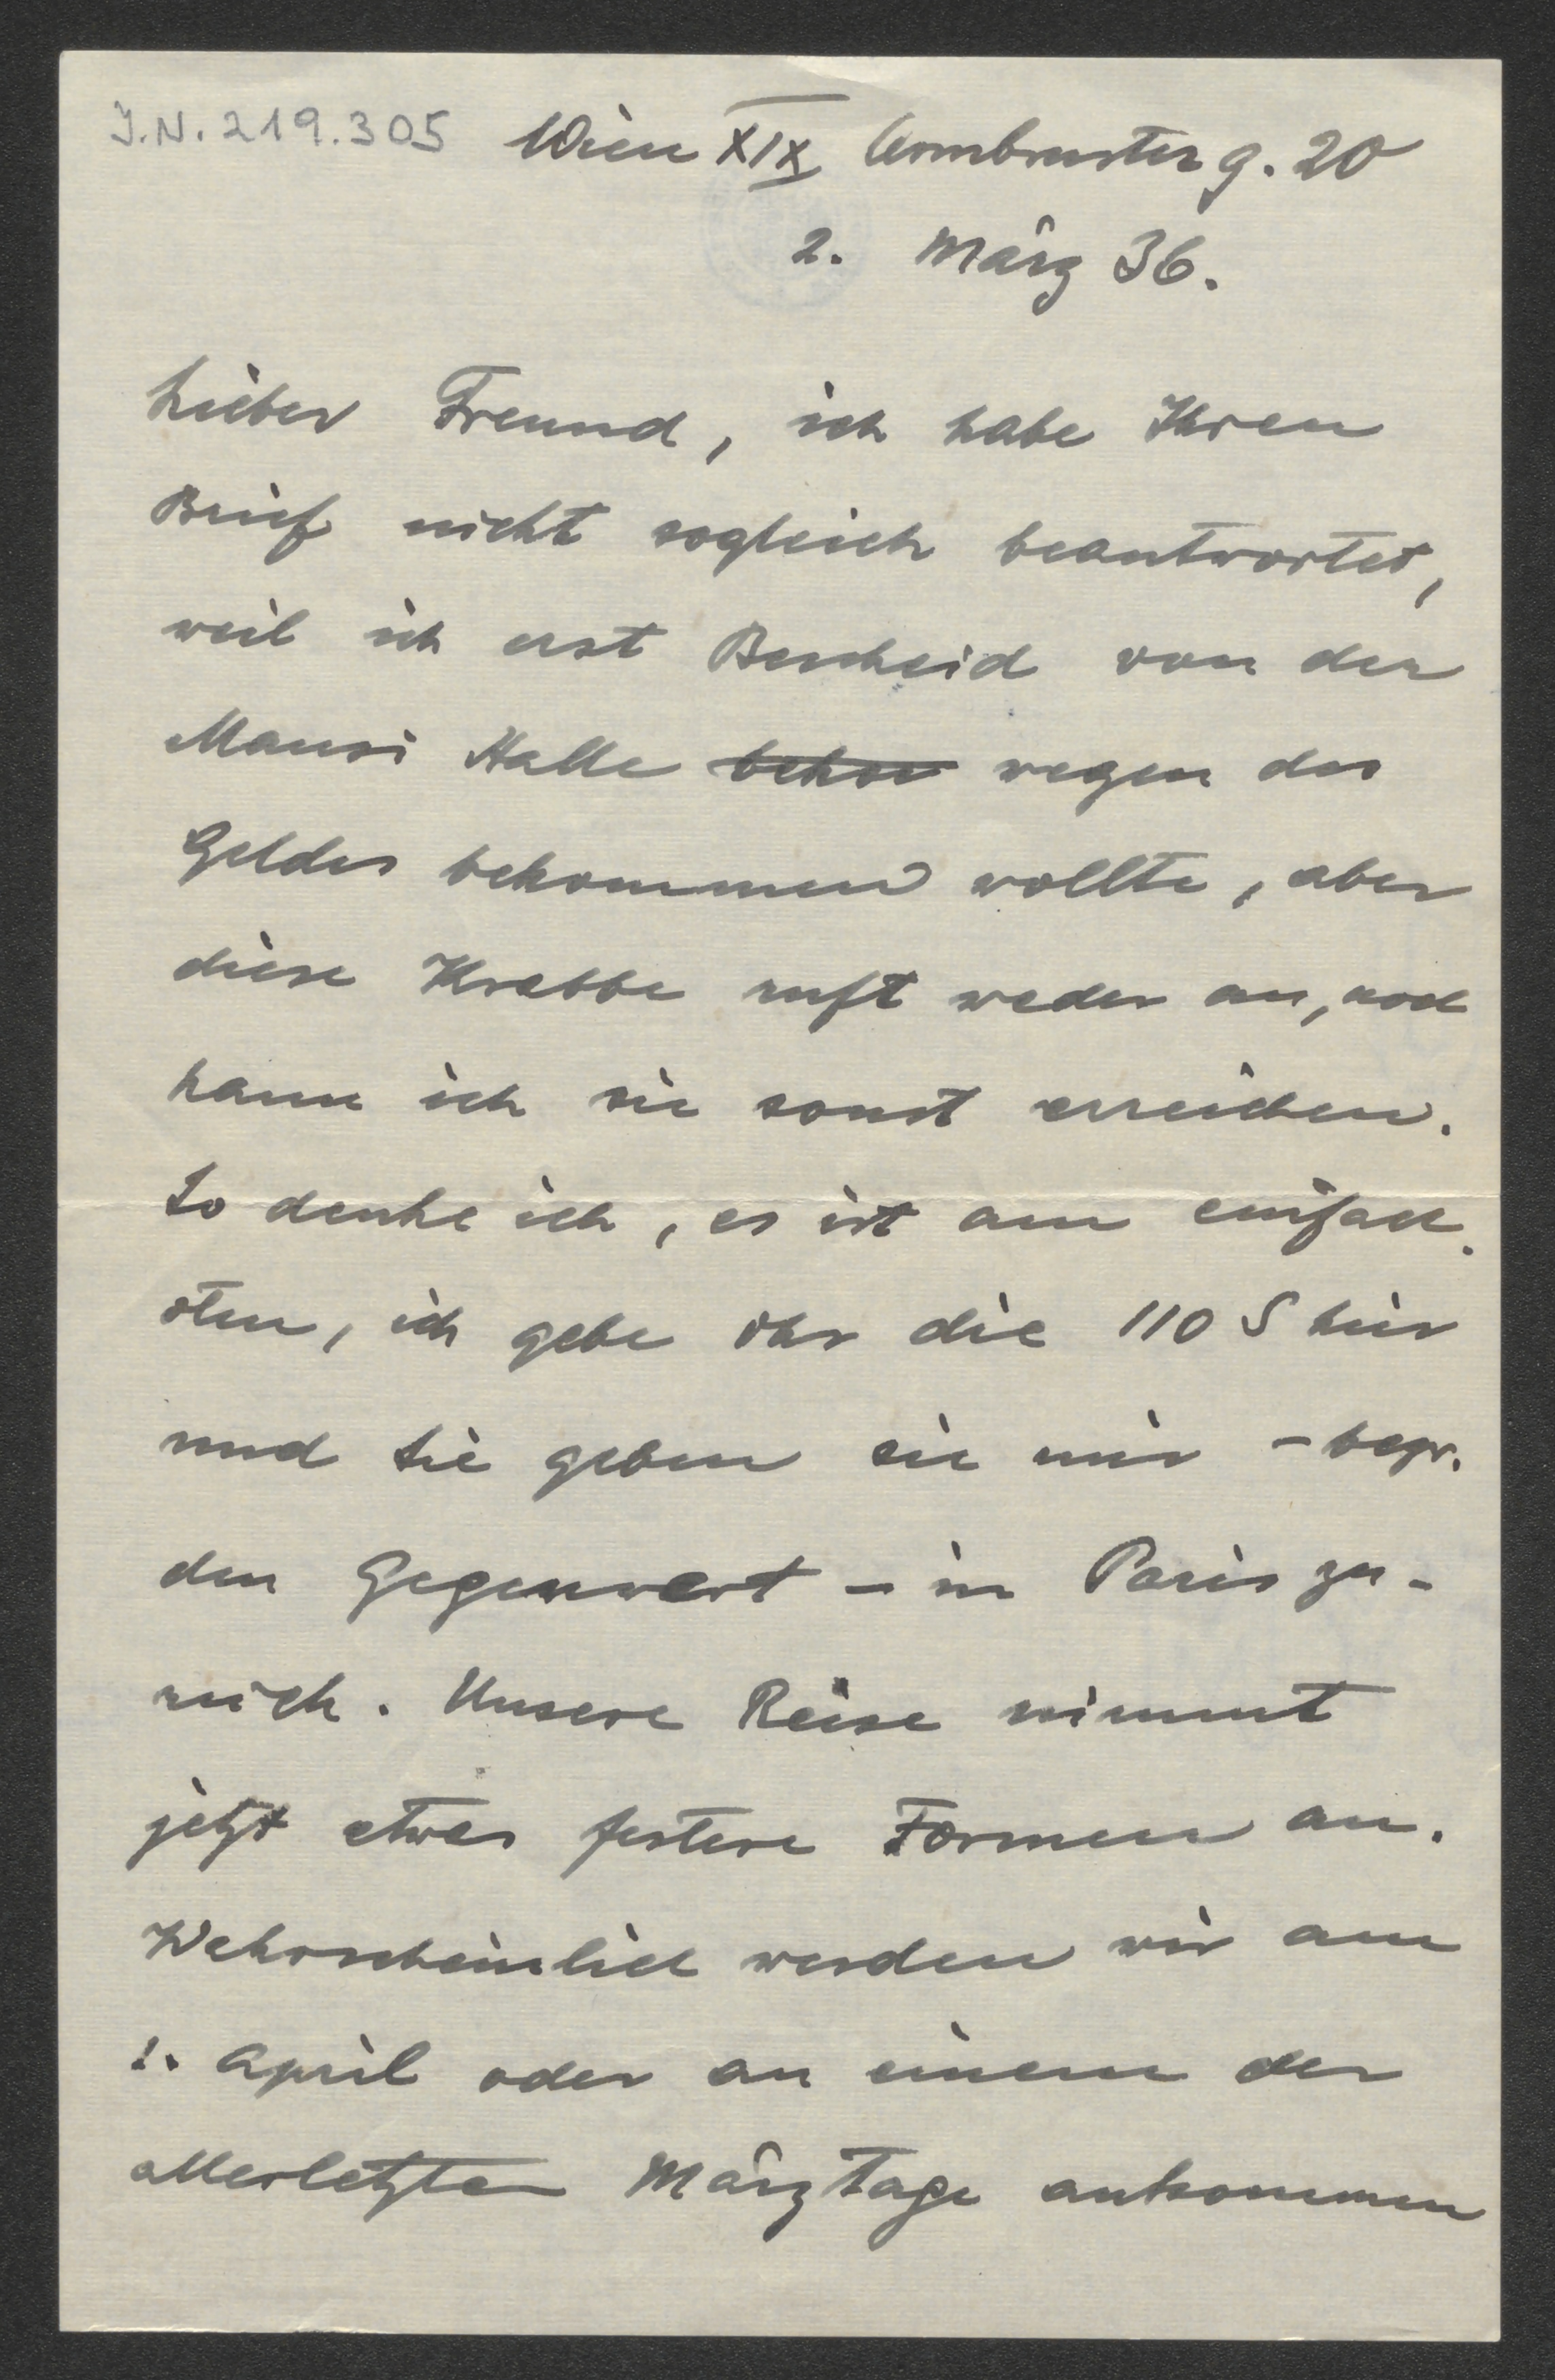 J.N. 219.305 Wien XIX Armbrusterg. 20
2. März 36.
Lieber Freund, ich habe Ihren
Brief nicht sogleich beantwortet,
weil ich erst Bescheid von der
Mausi Halle bekom wegen des
Geldes bekommen wollte, aber
diese Krabbe ruft weder an, noch
kann ich sie sonst erreichen.
So denke ich, es ist am einfach-
sten, ich gebe ihr die 110 S hier
und Sie geben sie mir – bezw.
den Gegenwert – in Paris zu-
rück. Unsere Reise nimmt
jetzt etwas festere Formen an.
Wahrscheinlich werden wir am
1. April oder an einem der
allerletzten Märztage ankommen